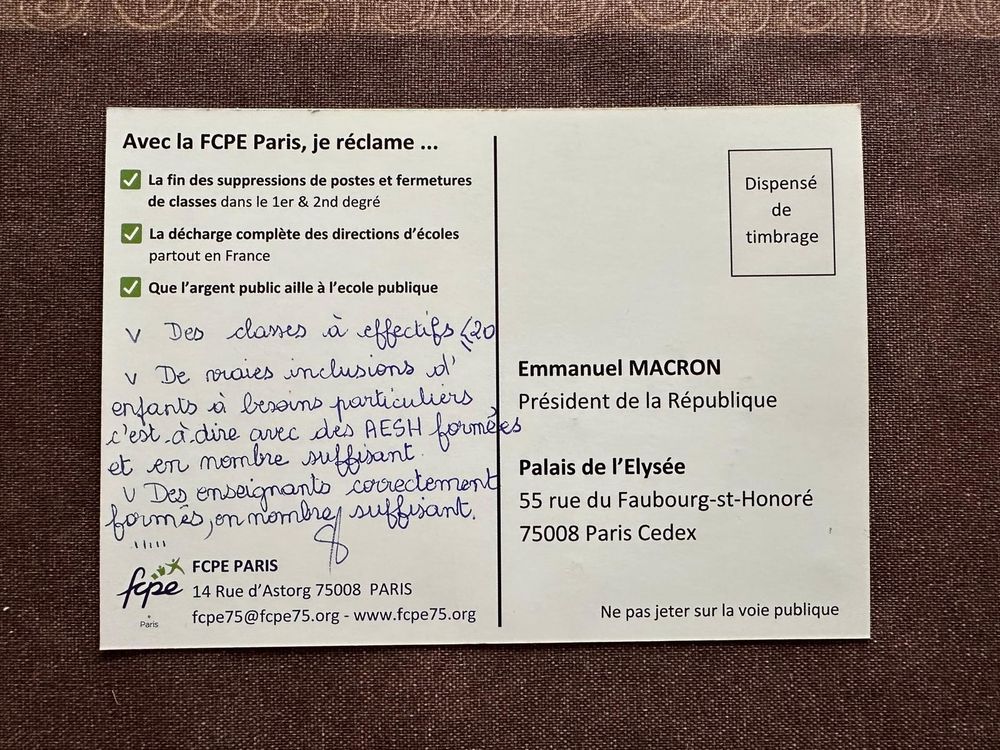 Avec la FCPE Paris, je réclame ...
La fin des suppressions de postes et fermetures
de classes dans le 1er & 2nd degré
La décharge complète des directions d'écoles
partout en France
Que l'argent public aille à l'ecole publique
V Des classes à effectifs ≤20
V De vraies inclusions d'
enfants à besoins particuliers,
c'est-à-dire avec des AESH formées
et en nombre suffisant.
V Des enseignants correctement
formés, en nombre suffisant.
fcpe
Paris
FCPE PARIS
14 Rue d'Astorg 75008 PARIS
fcpe75@fcpe75.org - www.fcpe75.org
Dispensé
de
timbrage
Emmanuel MACRON
Président de la République
Palais de l'Elysée
55 rue du Faubourg-st-Honoré
75008 Paris Cedex
Ne pas jeter sur la voie publique